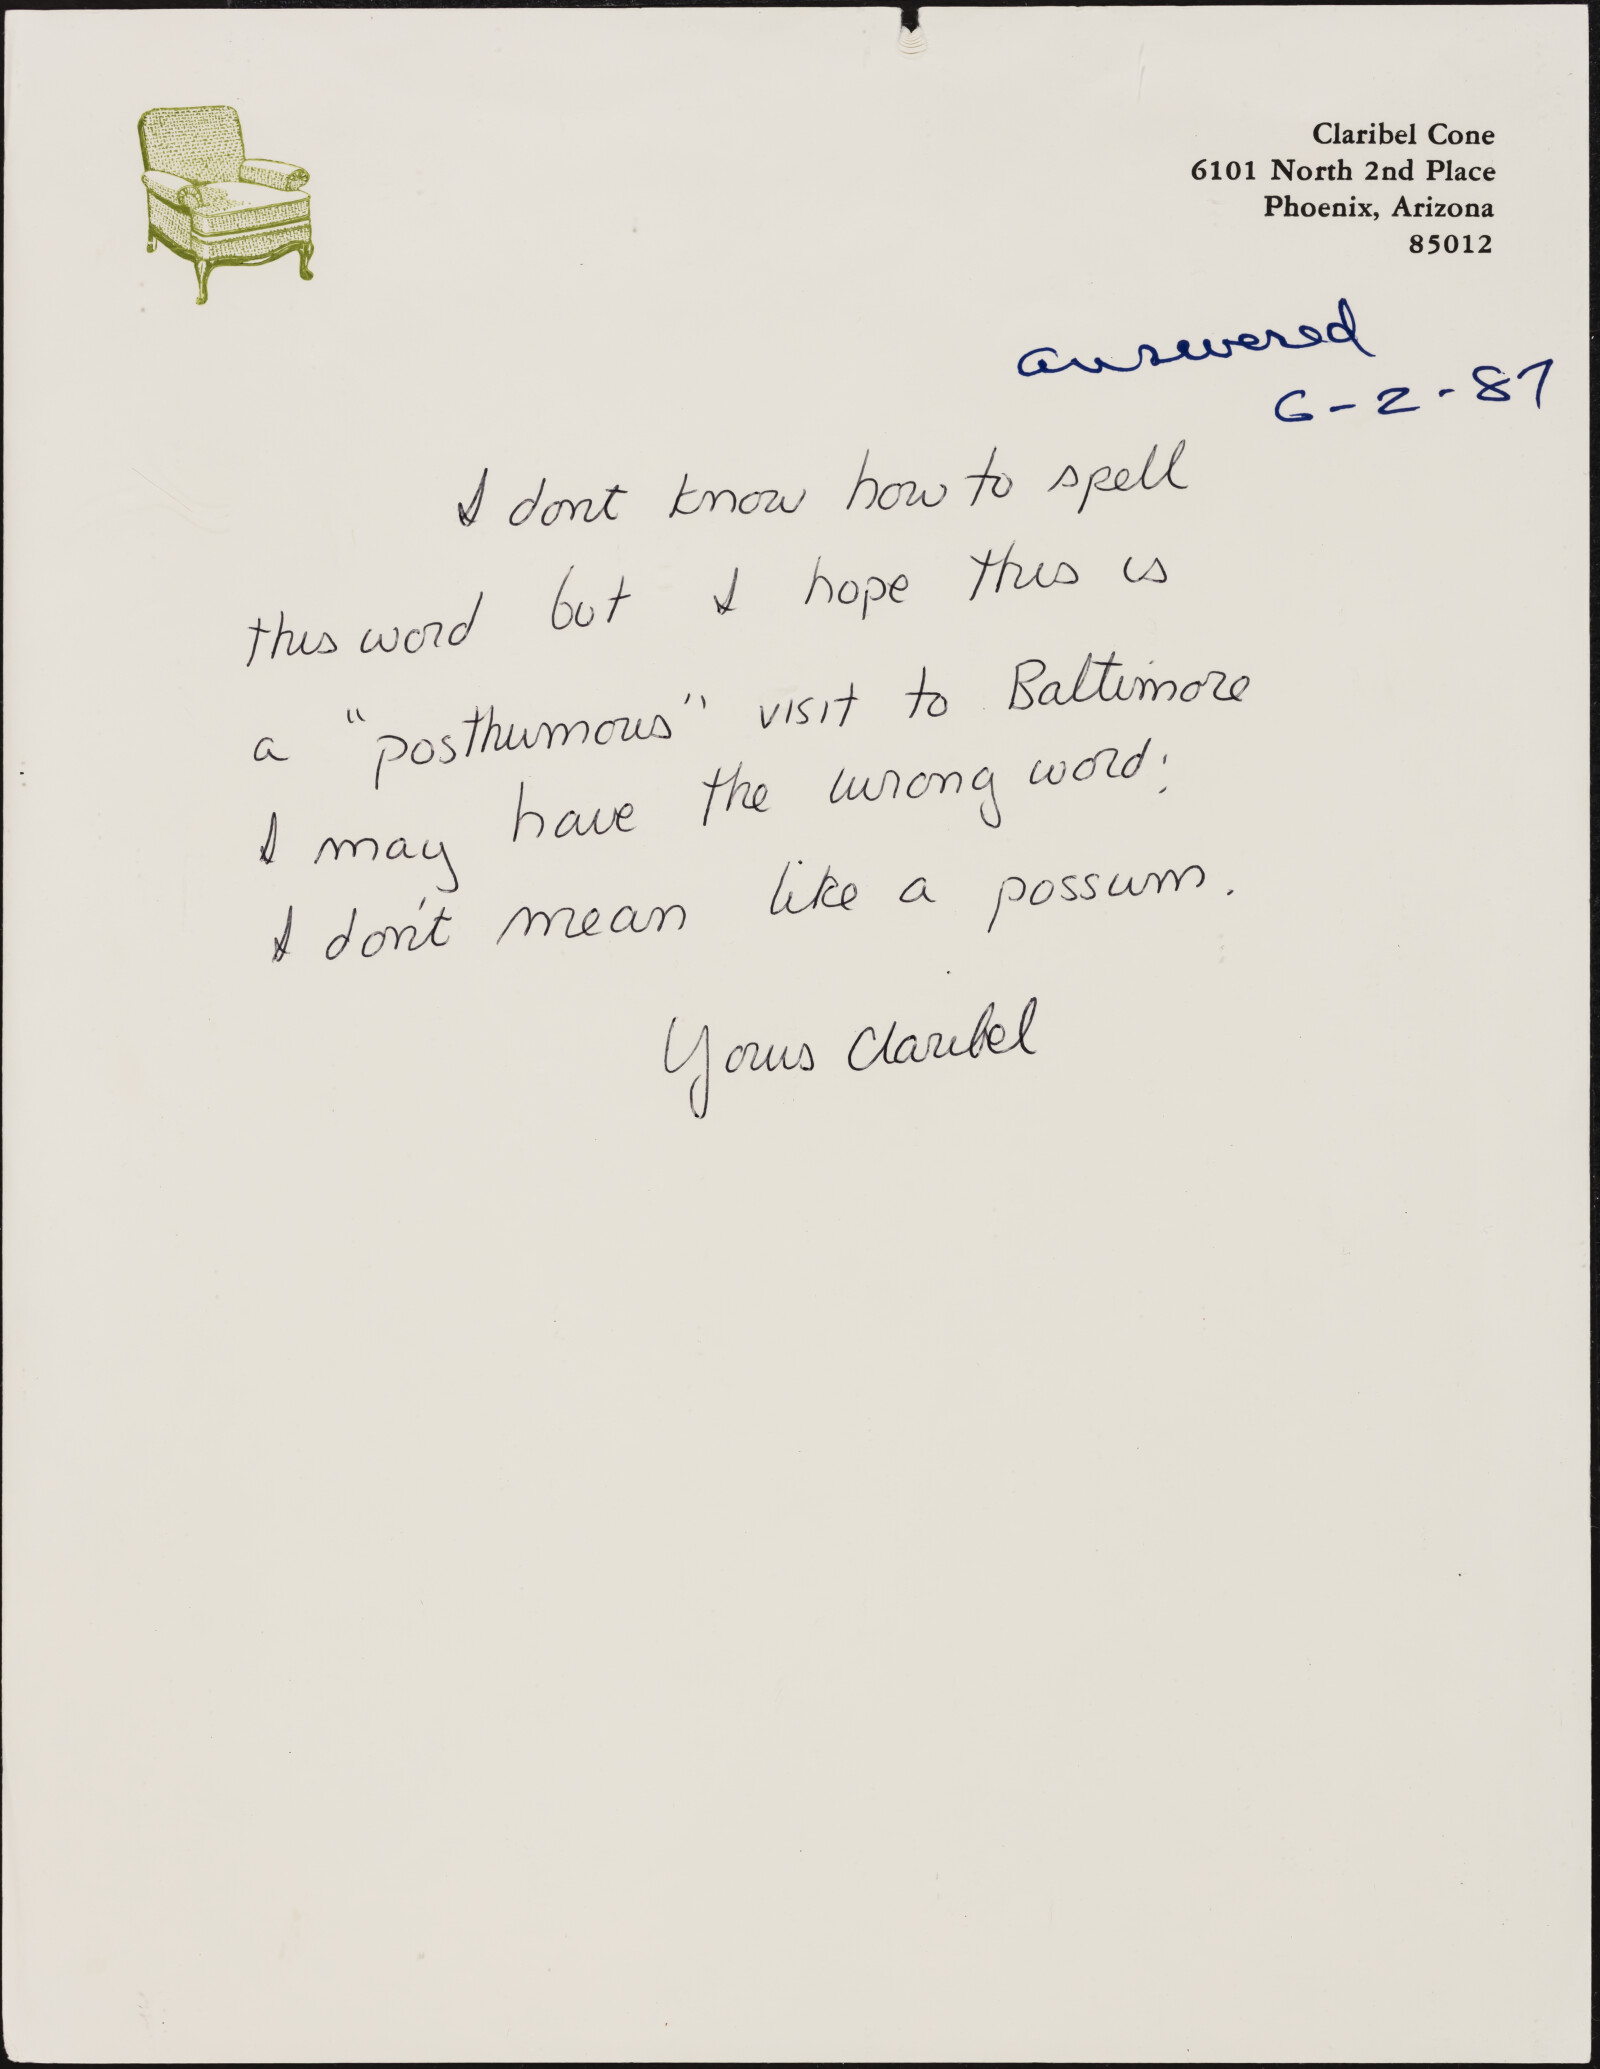 Claribel Cone
6101 North 2nd Place
Phoenix, Arizona
85012
answered
6-2-87
I dont know how to spell
this word but I hope this is
a "posthumous" visit to Baltimore
I may have the wrong word;
I don't mean like a possum.
Yours Claribel